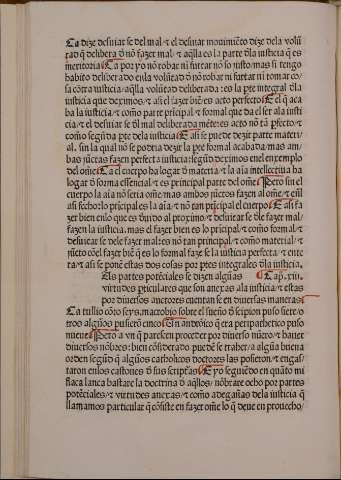 Ca dize desuiar se del mal ⁊ el desuiar mouimiẽto dize dela volũ
tad q̃ delibera d̃ nõ fazer mal ⁊ aq̃lla es la parte dla iusticia q̃ es
meritoria Ca por yo nõ robar ni furtar nõ so iusto mas si tengo
habito deliberado enla volũtad d̃ nõ robar ni furtar ni tomar co/
sa cõtra iusticia aq̃lla volũtad deliberada es la pte integral dla
iusticia que deximos ⁊ asi fazer biẽ es acto perfecto E el q̃ aca
ba la iusticia ⁊ como parte prĩcipal ⁊ formal que da el ser ala iusti
cia ⁊ el desuiar se dl mal deliberada mẽte es acto nõ tã pfecto ⁊
como segũda pte dela iusticia E asi se puede dezir parte materi/
al. sin la qual nõ se podria dezir la pte formal acabada mas am/
bas iũctas fazen perfecta iusticia segũd deximos enel enxemplo
del ome Ca el cuerpo ha logar d̃ materia ⁊ la aĩa intellectiua ha
logar d̃ forma essencial ⁊ es principal parte del ome Pero sin el
cuerpo la aĩa nõ seria ome mas ambos iũctos fazen al ome ⁊ el
asi fecho lo prĩcipal es la aĩa ⁊ nõ tan prĩcipal el cuerpo E asi fa
zer bien enlo que es deuido al proximo ⁊ desuiar se dle fazer mal
fazen la iusticia. mas el fazer bien es lo principal ⁊ como formal ⁊
desuiar se dele fazer mal es nõ tan principal ⁊ como material ⁊
iũcto cõel fazer biẽ q̃ es lo formal faze se la iusticia perfecta ⁊ ente
ra ⁊ asi se ponẽ estas dos cosas por ptes integrales dla iusticia.
Las partes potẽciales ⁊ dizen algũas Cap. xiii.
virtudes pticulares que son anexas ala iusticia ⁊ estas
por diuersos auctores cuentan se en diuersas maneras
Ca tullio cõto seys. macrobio sobre el sueño d̃ scipion puso siete o
tros algũos pusierõ cinco Un andronico q̃ era peripathetico puso
nueue Pero a vn q̃ parescen proceder por diuerso nũero ⁊ hauer
diuersos nõbres bien cõsiderado puede se traher a algũa buena
orden segũd q̃ algũos catholicos doctores las posieron ⁊ engas/
taron enlos castones d̃ sus scripturas E yo seguiẽdo en quãto mi
flaca lança bastare la doctrina d̃ aq̃llos nõbrare ocho por partes
potẽciales ⁊ virtudes anexas ⁊ como adegañas dela iusticia q̃
llamamos particular q̃ cõsiste en fazer ome lo q̃ deue en prouecho